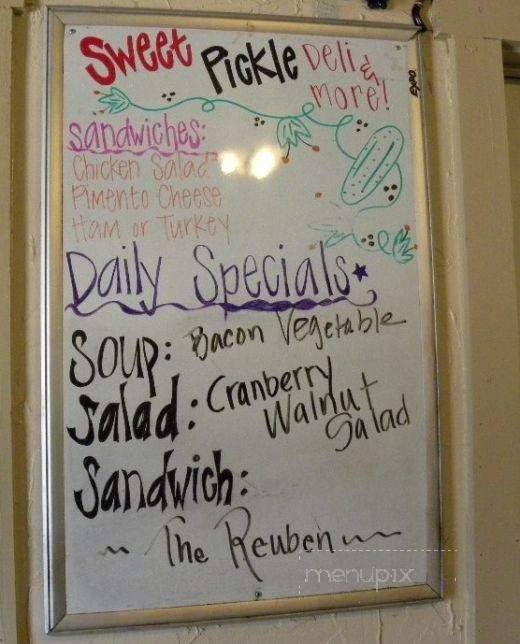 Sweet Pickle Deli &
More!
EXPO
Sandwiches:
Chicken Salad
Pimento Cheese
Ham or Turkey
Daily Specials
Soup: Bacon Vegetable
Salad: Cranberry
Walnut
Salad
Sandwich:
~ The Reuben ~
menupix